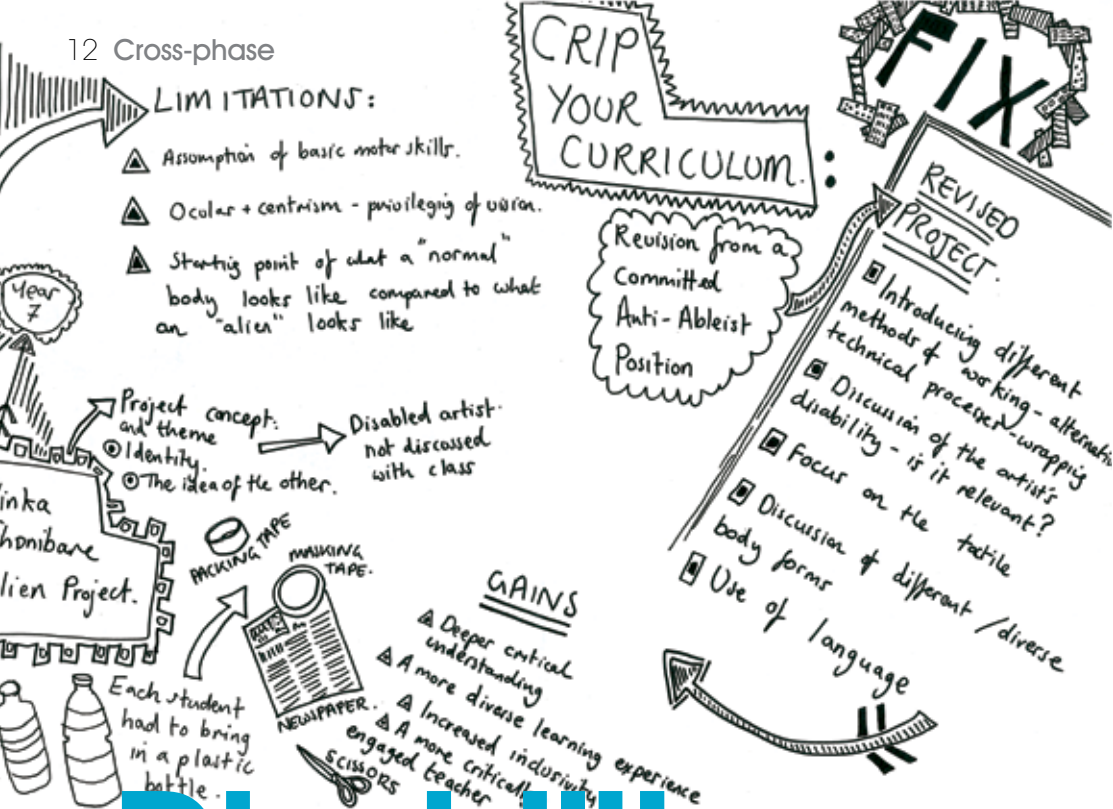 12 Cross-phase
LIMITATIONS:
Assumption of basic motor skills.
Ocular + centrism - privileging of vision.
Starting point of what a "normal"
body looks like compared to what
an "alien" looks like
Year
7
Project concept:
and theme
Identity.
The idea of the other.
Disabled artist
not discussed
with class
inka
honibare
lien Project.
PACKING TAPE
MASKING
TAPE.
NEWSPAPER.
SCISSORS
Each student
had to bring
in a plastic
bottle.
CRIP
YOUR
CURRICULUM.
:
Revision from a
Committed
Anti-Ableist
Position
FIX
REVISED
PROJECT.
Introducing different
methods of working - alternativ
technical processes - wrapping
Discussion of the artist's
disability - is it relevant?
Focus on the tactile
Discussion of different / diverse
body forms
Use of language
GAINS
Deeper critical
understanding
A more diverse learning experience
Increased inclusivity
A more critically
engaged teacher